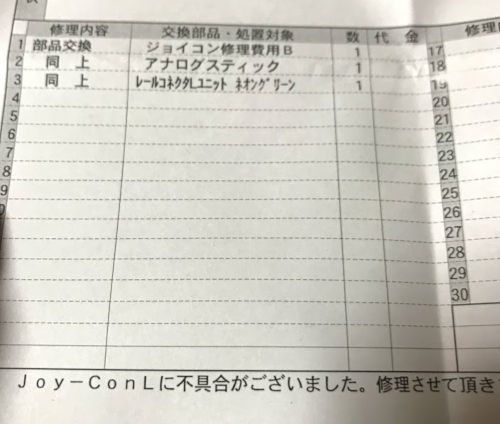 修理内容 交換部品・処置対象 数 代 金
1 部品交換 ジョイコン修理費用B 1 17
2 同 上 アナログスティック 1 18
3 同 上 レールコネクタLユニット ネオングリーン 1 19
4 20
5 21
6 22
7 23
8 24
9 25
26
27
28
29
30
Joy-ConLに不具合がございました。修理させて頂き